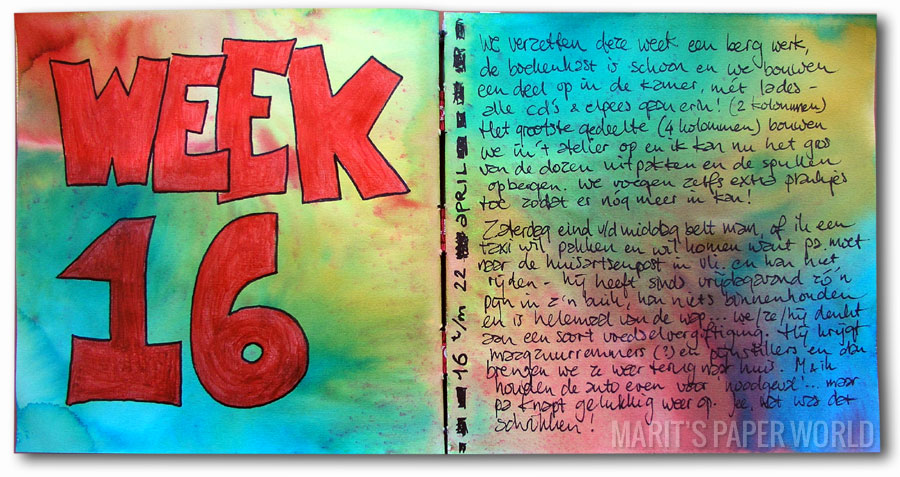 WEEK
16
16 t/m 22 APRIL
We verzetten deze week een berg werk,
de boekenkast is schoon en we bouwen
een deel op in de kamer, mét lades -
alle cd's & elpees gaan erin! (2 kolommen)
Het grootste gedeelte (4 kolommen) bouwen
we in 't atelier op en ik kan nu het gros
van de dozen uitpakken en de spullen
opbergen. We voegen zelfs extra plankjes
toe zodat er nóg meer in kan!
Zaterdag eind v/d middag belt man, of ik een
taxi wil pakken en wil komen want pa moet
naar de huisartsenpost in Vli. en kan niet
rijden. Hij heeft sinds vrijdagavond zo'n
pijn in z'n buik, kan niets binnenhouden
en is helemaal van de wap... we/ze/hij denkt
aan een soort voedselvergiftiging. Hij krijgt
maagzuurremmers (?) en pijnstillers en dan
brengen we ze weer terug naar huis. M & ik
houden de auto even voor 'noodgeval'... maar
pa knapt gelukkig weer op. Jee, wat was dat
schrikken!
MARIT'S PAPER WORLD